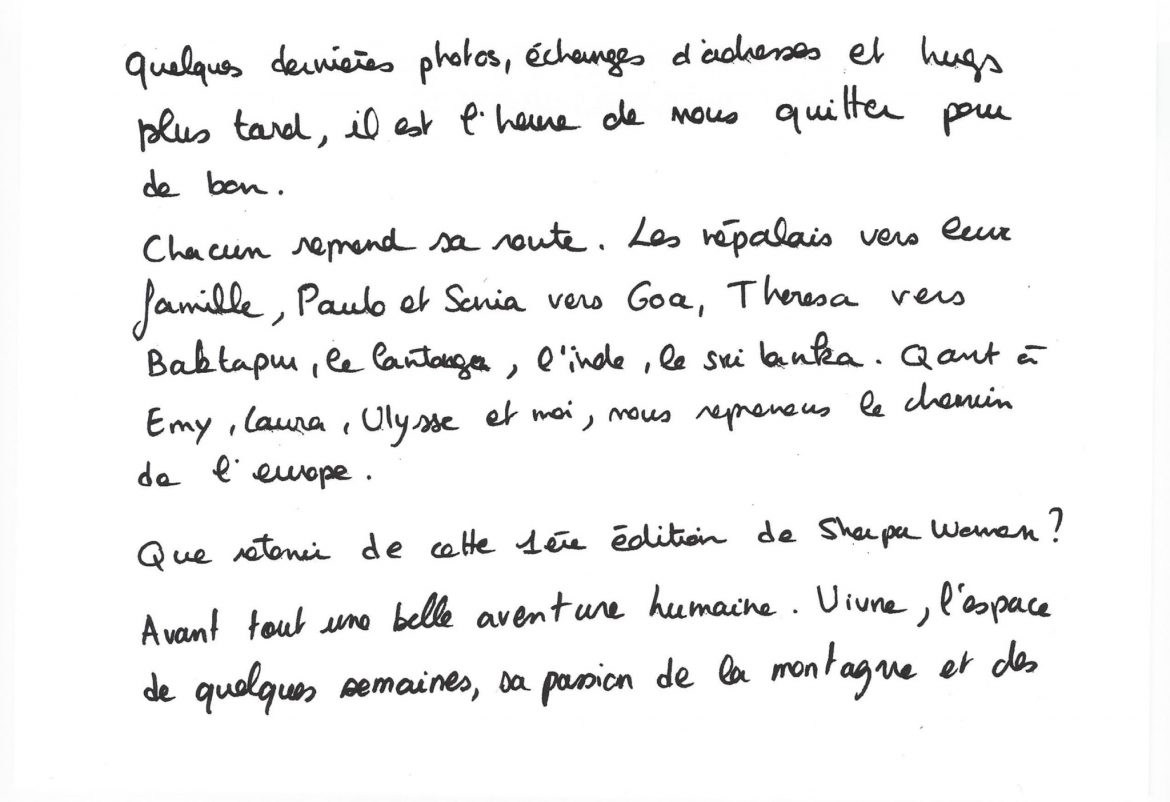 Quelques dernières photos, échanges d'adresses et hugs
plus tard, il est l'heure de nous quitter pour
de bon.
Chacun reprend sa route. Les népalais vers leur
famille, Paulo et Sonia vers Goa, Theresa vers
Baktapur, le Lantanga, l'inde, le sri lanka. Qant à
Emy, Laura, Ulysse et moi, nous reprenons le chemin
de l'europe.
Que retenir de cette 1ère édition de Sherpa Woman?
Avant tout une belle aventure humaine. Vivre, l'espace
de quelques semaines, sa passion de la montagne et des